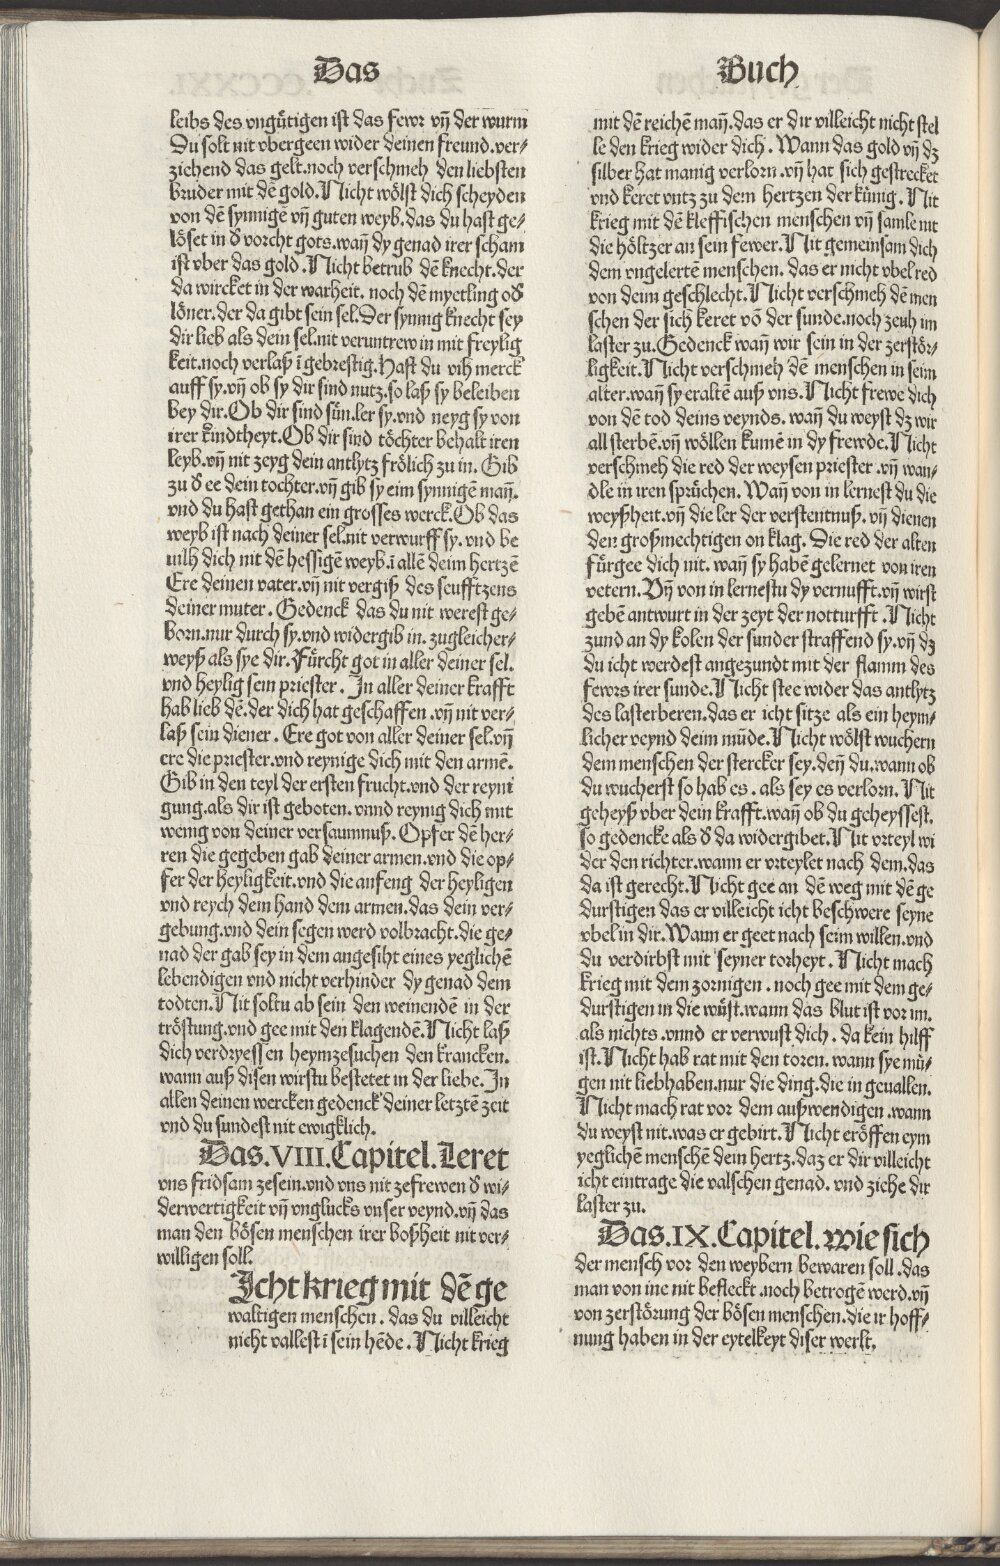 Das
Buch
leibs des vngütigen ist das fewr vn̄ der wurm
Du solt nit vbergeen wider deinen freund.ver⸗
ziehend das gelt.noch verschmeh den liebsten
bruder mit dē gold.Nicht wölst dich scheyden
von dē synnigē vn̄ guten weyb.das du hast ge⸗
löset in d̕ vorcht gots.wan̄ dy genad irer scham
ist vber das gold.Nicht betrub dē knecht.der
da wircket in der warheit. noch dē myetling od̕
löner.der da gibt sein sel.Der synnig knecht sey
dir lieb als dein sel.nit veruntrew in mit freylig
keit.noch verlaß ī gebrestig.Hast du vih merck
auff sy.vn̄ ob sy dir sind nutz.so laß sy beleiben
bey dir.Ob dir sind sün.ler sy.vnd neyg sy von
irer kindtheyt.Ob dir sind töchter behalt iren
leyb.vn̄ nit zeyg dein antlytz frölich zu in. Gib
zu d̕ ee dein tochter.vn̄ gib sy eim synnigē man̄.
vnd du hast gethan ein grosses werck.Ob das
weyb ist nach deiner sel.nit verwurff sy.vnd be
uilh dich nit dē hessigē weyb.ī allē deim hertzē
Ere deinen vater.vn̄ nit vergiß des seufftzens
deiner muter. Gedenck das du nit werest ge⸗
born.nur durch sy.vnd widergib in. zugleicher⸗
weyß als sye dir.Fürcht got in aller deiner sel.
vnd heylig sein priester. In aller deiner krafft
hab lieb dē.der dich hat geschaffen.vn̄ nit ver⸗
laß sein diener. Ere got von aller deiner sel.vn̄
ere die priester.vnd reynige dich mit den armē.
Gib in den teyl der ersten frucht.vnd der reyni
gung.als dir ist geboten.vnnd reynig dich mit
wenig von deiner versaumnuß. Opfer dē her⸗
ren die gegeben gab deiner armen.vnd die op⸗
fer der heyligkeit.vnd die anfeng der heyligen
vnd reych dein hand dem armen.das dein ver⸗
gebung.vnd dein segen werd volbracht.die ge⸗
nad der gab sey in dem angesiht eines yeglichē
lebendigen vnd nicht verhinder dy genad dem
todten.Nit soltu ab sein den weinendē in der
tröstung.vnd gee mit den klagendē.Nicht laß
dich verdryessen heymzesuchen den krancken.
wann auß disen wirstu bestetet in der liebe.In
allen deinen wercken gedenck deiner letztē zeit
vnd du sundest nit ewigklich.
Das.VIII.Capitel.Leret
vns fridsam zesein.vnd vns nit zefrewen d̕ wi⸗
derwertigkeit vn̄ vnglucks vnser veynd.vn̄ das
man den bösen menschen irer boßheit nit ver⸗
willigen soll.
Icht krieg mit dē ge
waltigen menschen. das du villeicht
nicht vallest ī sein hēde. Nicht krieg
mit dē reichē man̄.das er dir villeicht nicht stel
le den krieg wider dich. Wann das gold vn̄ dz
silber hat manig verlorn.vn̄ hat sich gestrecket
vnd keret vntz zu dem hertzen der künig. Nit
krieg mit dē kleffischen menschen vn̄ samle nit
die höltzer an sein fewer.Nit gemeinsam dich
dem vngelertē menschen. das er nicht vbel red
von deim geschlecht.Nicht verschmeh dē men
schen der sich keret vō der sunde.noch zeuh im
laster zu.Gedenck wan̄ wir sein in der zerstör⸗
ligkeit.Nicht verschmeh dē menschen in seim
alter.wan̄ sy eraltē auß vns.Nicht frewe dich
von dē tod deins veynds. wan̄ du weyst dz wir
all sterbē.vn̄ wöllen kumē in dy frewde.Nicht
verschmeh die red der weysen priester.vn̄ wan⸗
dle in iren sprüchen. Wan̄ von in lernest du die
weyßheit.vn̄ die ler der verstentnuß. vn̄ dienen
den großmechtigen on klag. Die red der alten
fürgee dich nit. wan̄ sy habē gelernet von iren
vetern. Vn̄ von in lernestu dy vernufft.vn̄ wirst
gebē antwurt in der zeyt der notturfft. Nicht
zund an dy kolen der sunder straffend sy.vn̄ dz
du icht werdest angezundt mit der flamm des
fewrs irer sunde.Nicht stee wider das antlytz
des lasterberen.das er icht sitze als ein heym⸗
licher veynd deim mūde.Nicht wölst wuchern
dem menschen der stercker sey.den̄ du.wann ob
du wucherst so hab es. als sey es verlorn. Nit
geheyß vber dein krafft.wan̄ ob du geheyssest.
so gedencke als d̕ da widergibet.Nit vrteyl wi
der den richter.wann er vrteylet nach dem.das
da ist gerecht.Nicht gee an dē weg mit dē ge
durstigen das er villeicht icht beschwere seyne
vbel in dir.Wann er geet nach seim willen.vnd
du verdirbst mit seyner torheyt. Nicht mach
krieg mit dem zornigen. noch gee mit dem ge⸗
durstigen in die wüst.wann das blut ist vor im.
als nichts.vnnd er verwust dich. da kein hilff
ist.Nicht hab rat mit den toren. wann sye mü⸗
gen nit liebhaben.nur die ding.die in geuallen.
Nicht mach rat vor dem außwendigen.wann
du weyst nit.was er gebirt.Nicht eröffen eym
yeglichē menschē dem hertz.daz er dir villeicht
icht eintrage die valschen genad. vnd ziehe dir
laster zu.
Das.IX.Capitel.wie sich
der mensch vor den weybern bewaren soll.das
man von ine nit befleckt.noch betrogē werd.vn̄
von zerstörung der bösen menschen.die ir hoff⸗
nung haben in der eytelkeyt diser werlt.